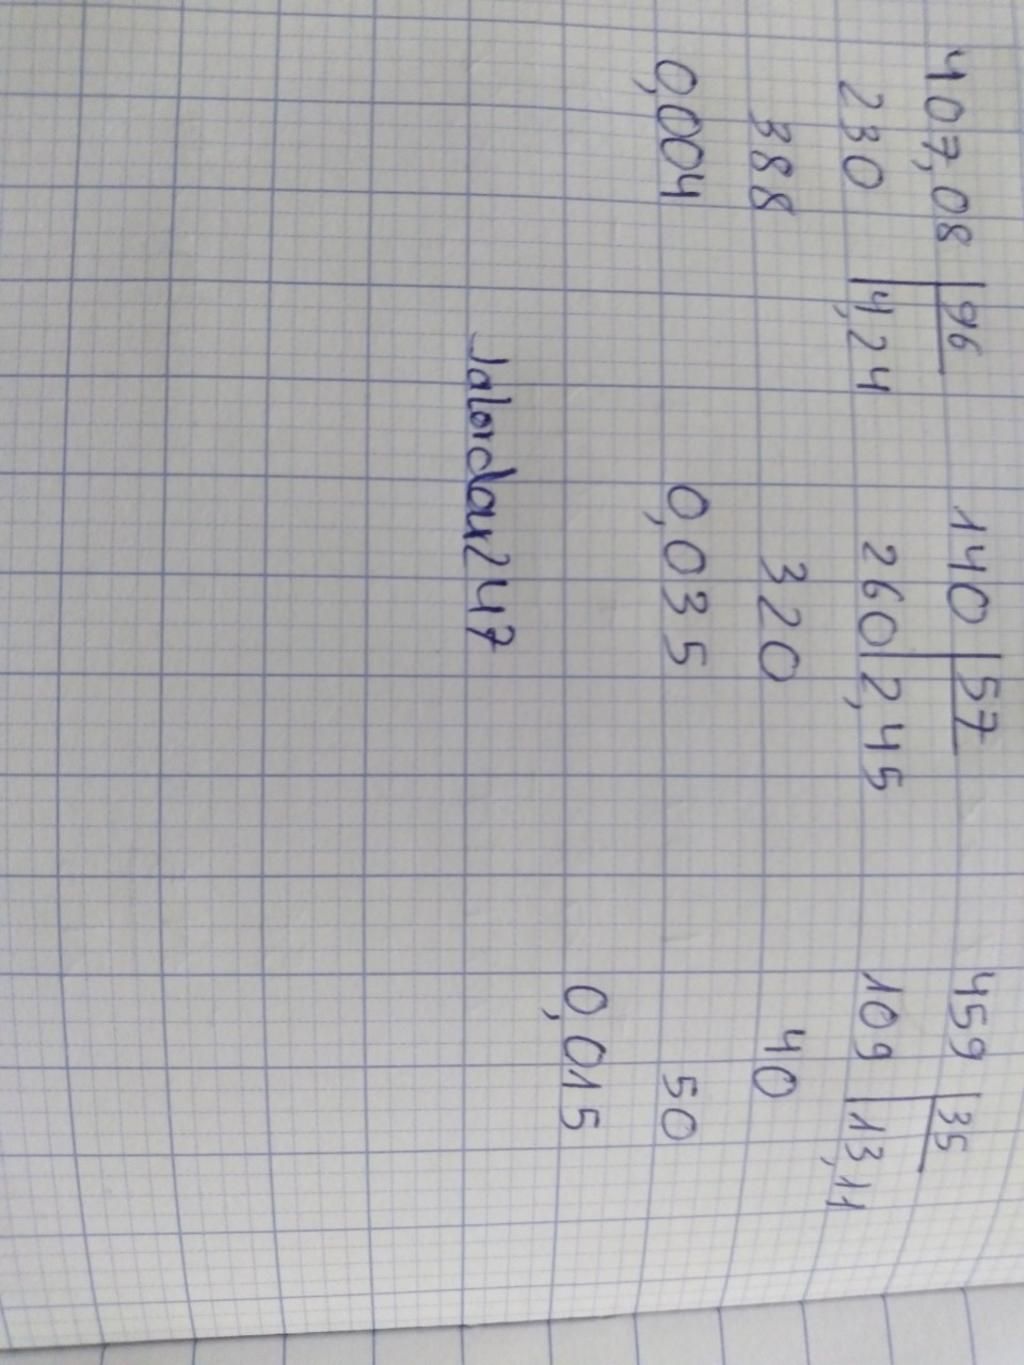 407,08 | 96
230 | 4,24
388
0,004
140 | 57
260 | 2,45
320
0,035
459 | 35
109 | 13,11
40
50
0,015
Jalordar247